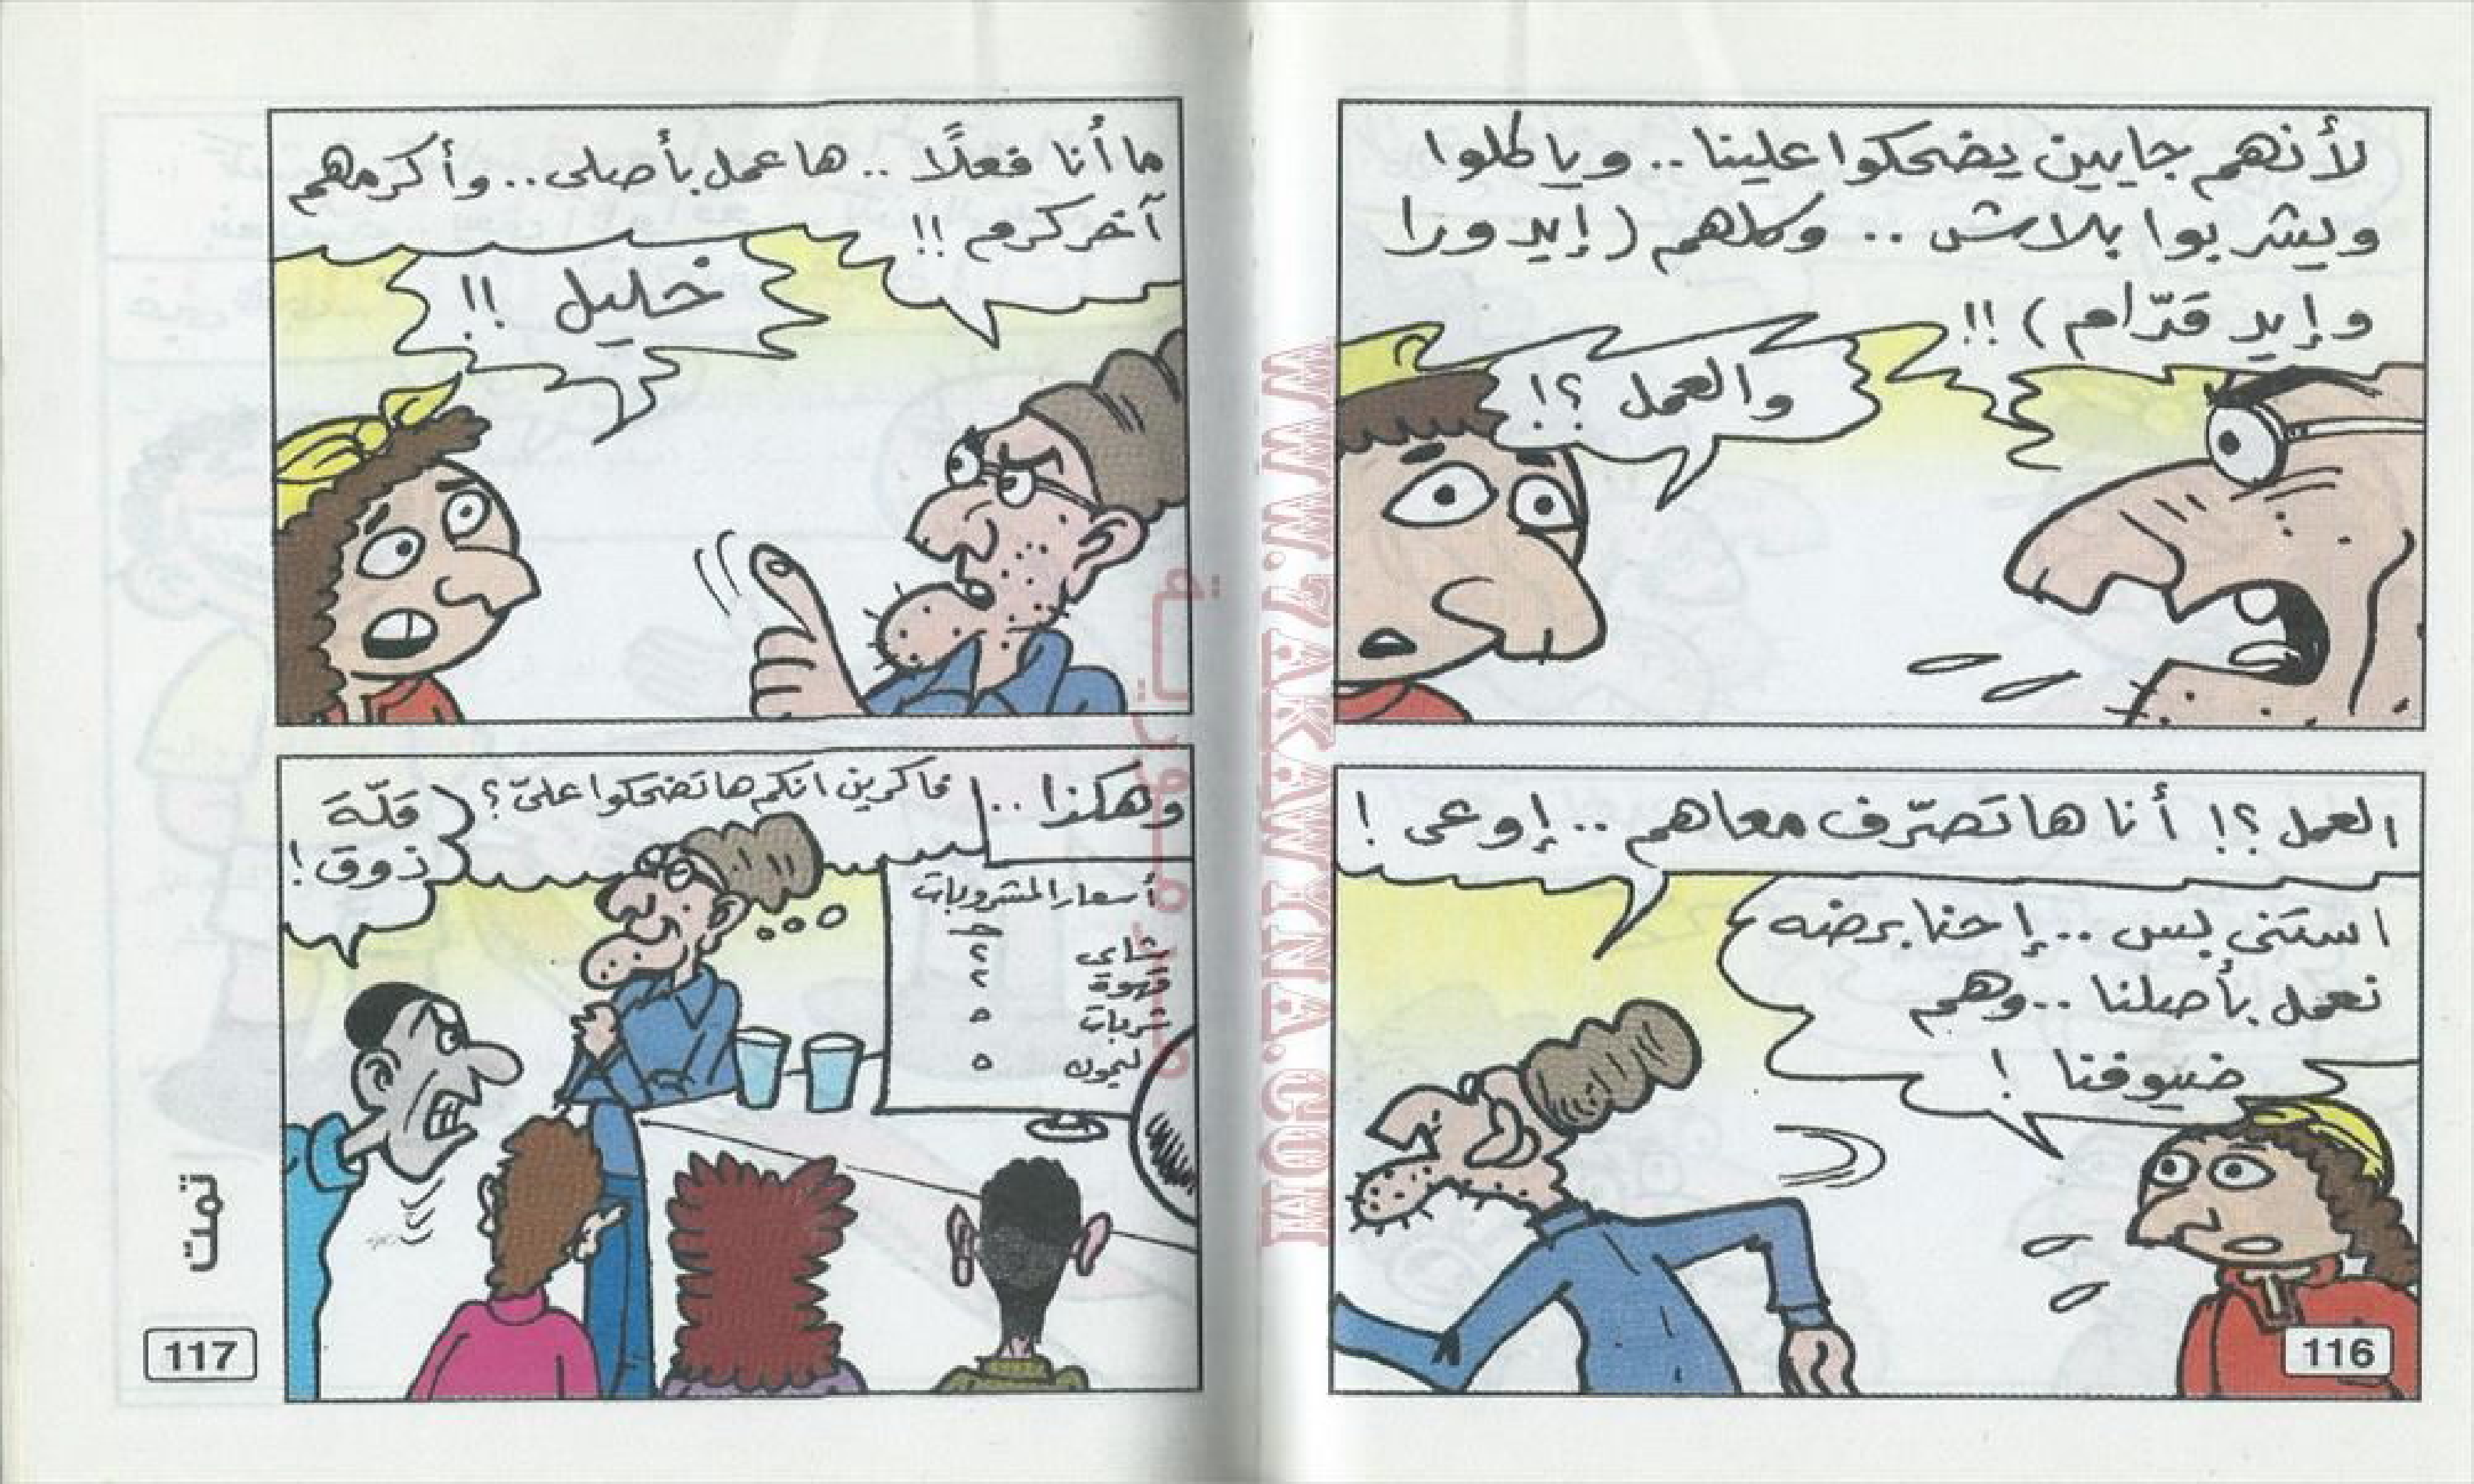 لأنهم جايين يضحكوا علينا .. وياكلوا
ويشربوا بلاش .. وكلهم (إيد ورا
وإيد قدّام) !!
والعمل ؟!
العمل ؟! أنا هاتصرّف معاهم .. إوعى !
استنى بس .. إحنا برضه
نعمل بأصلنا .. وهم
ضيوفنا !
116
ما أنا فعلًا .. هاعمل بأصلى .. وأكرمهم
آخر كرم !!
خليل !!
وهكذا ..
فاكرين انكم هاتضحكوا علىّ ؟
قلّة
ذوق !
أسعار المشروبات
شاى ٢
قهوة ٢
شربات ٥
ليمون ٥
تمت
117